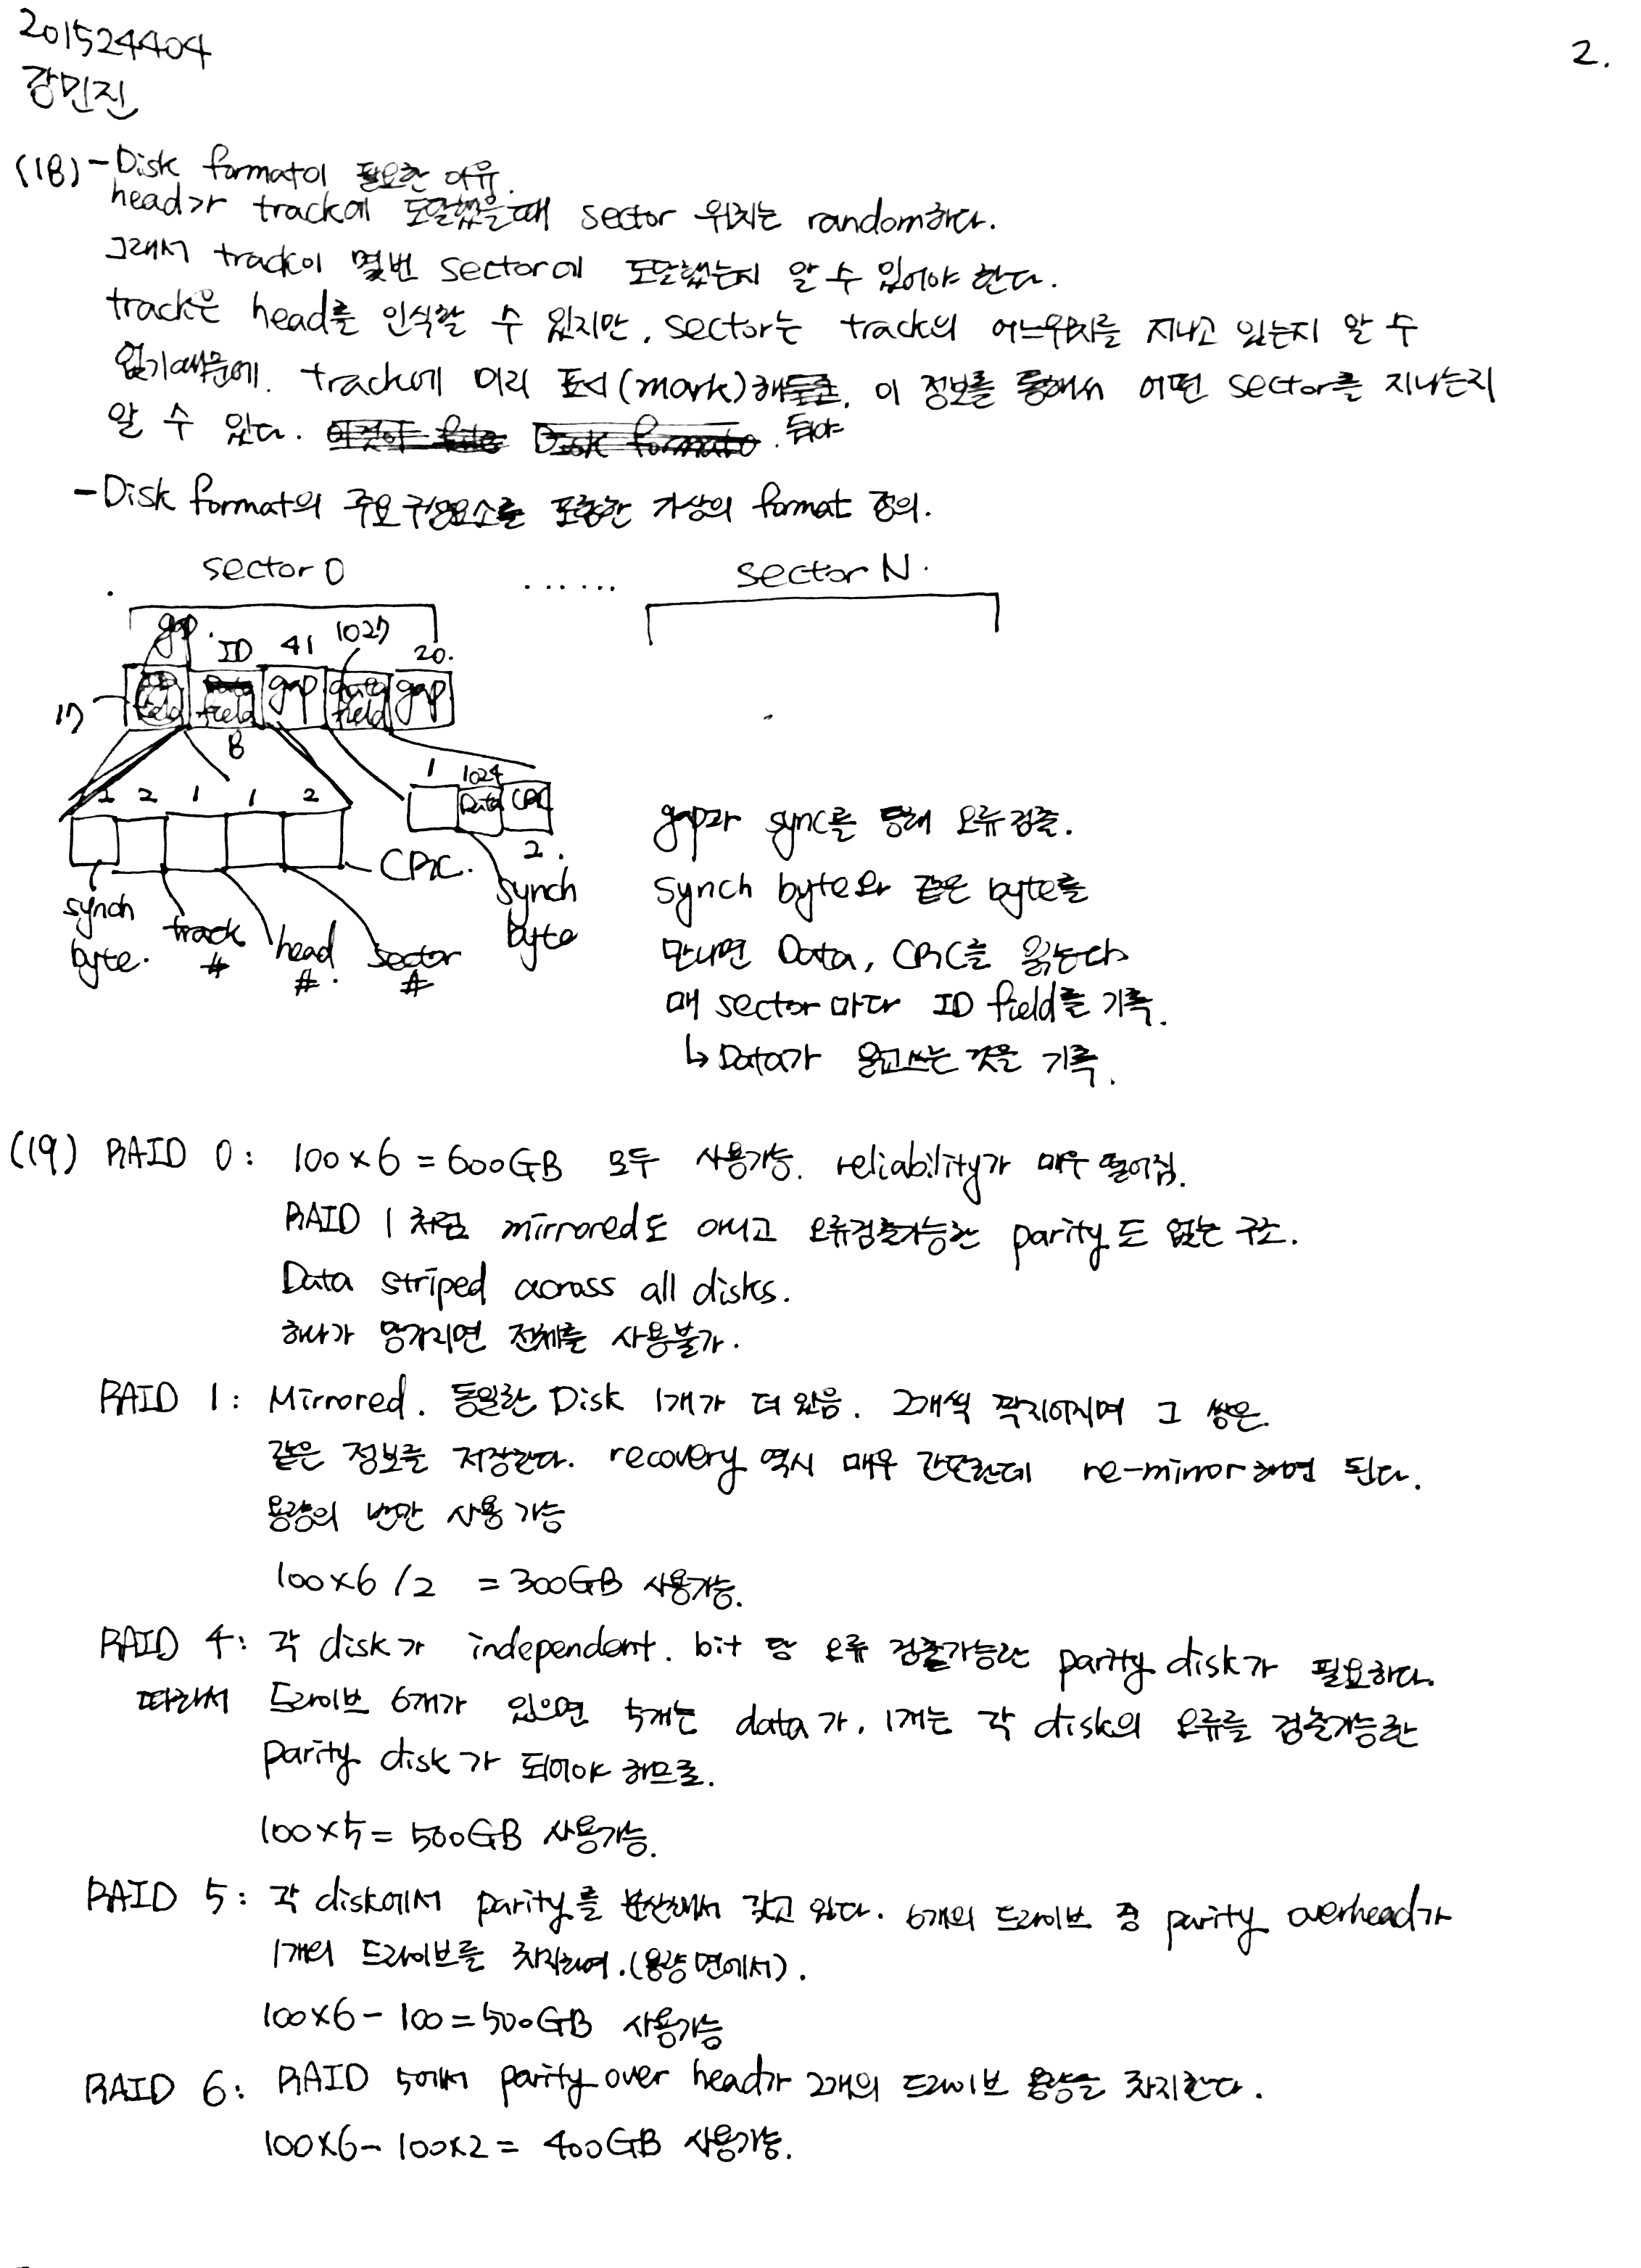 201524404
2.
강민진
(18) - Disk format이 필요한 이유.
head가 track에 도달했을때 sector 위치는 random하다.
그래서 track이 몇번 sector에 도달했는지 알 수 있어야 한다.
track은 head를 인식할 수 있지만, sector는 track의 어느위치를 지나고 있는지 알 수
없기때문에. track에 미리 표시(mark)해 이 정보를 통해서 어떤 sector를 지나는지
알 수 있다. 둬야
- Disk format의 주요구성요소를 포함한 가상의 format 정의.
sector 0 ...... sector N.
gap. ID 41 1027 20.
17 field field gap data field gap
8
1 2 1 1 2
1 1024
Data CRC
2.
CRC.
synch byte.
track #
head #.
sector #
synch byte
gap과 sync를 통해 오류검출.
synch byte와 같은 byte를
만나면 Data, CRC를 읽는다
매 sector 마다 ID field를 기록.
↳ Data가 읽고쓰는 것을 기록.
(19) RAID 0: 100×6 = 600GB 모두 사용가능. reliability가 매우 떨어짐.
RAID 1처럼 mirrored도 아니고 오류검출가능한 parity도 없는 구조.
Data striped across all disks.
하나가 망가지면 전체를 사용불가.
RAID 1: Mirrored. 동일한 Disk 1개가 더 있음. 2개씩 짝지어지며 그 쌍은.
같은 정보를 저장한다. recovery 역시 매우 간단한데 re-mirror하면 된다.
용량의 반만 사용 가능
100×6 /2 = 300GB 사용가능.
RAID 4: 각 disk가 independent. bit 당 오류 검출가능한 parity disk가 필요하다.
따라서 드라이브 6개가 있으면 5개는 data가, 1개는 각 disk의 오류를 검출가능한
parity disk가 되어야 하므로.
100×5 = 500GB 사용가능.
RAID 5: 각 disk에서 parity를 분산해서 갖고 있다. 6개의 드라이브 중 parity overhead가
1개의 드라이브를 차지하여.(용량 면에서).
100×6 - 100 = 500GB 사용가능
RAID 6: RAID 5에서 parity over head가 2개의 드라이브 용량을 차지한다.
100×6 - 100×2 = 400GB 사용가능.